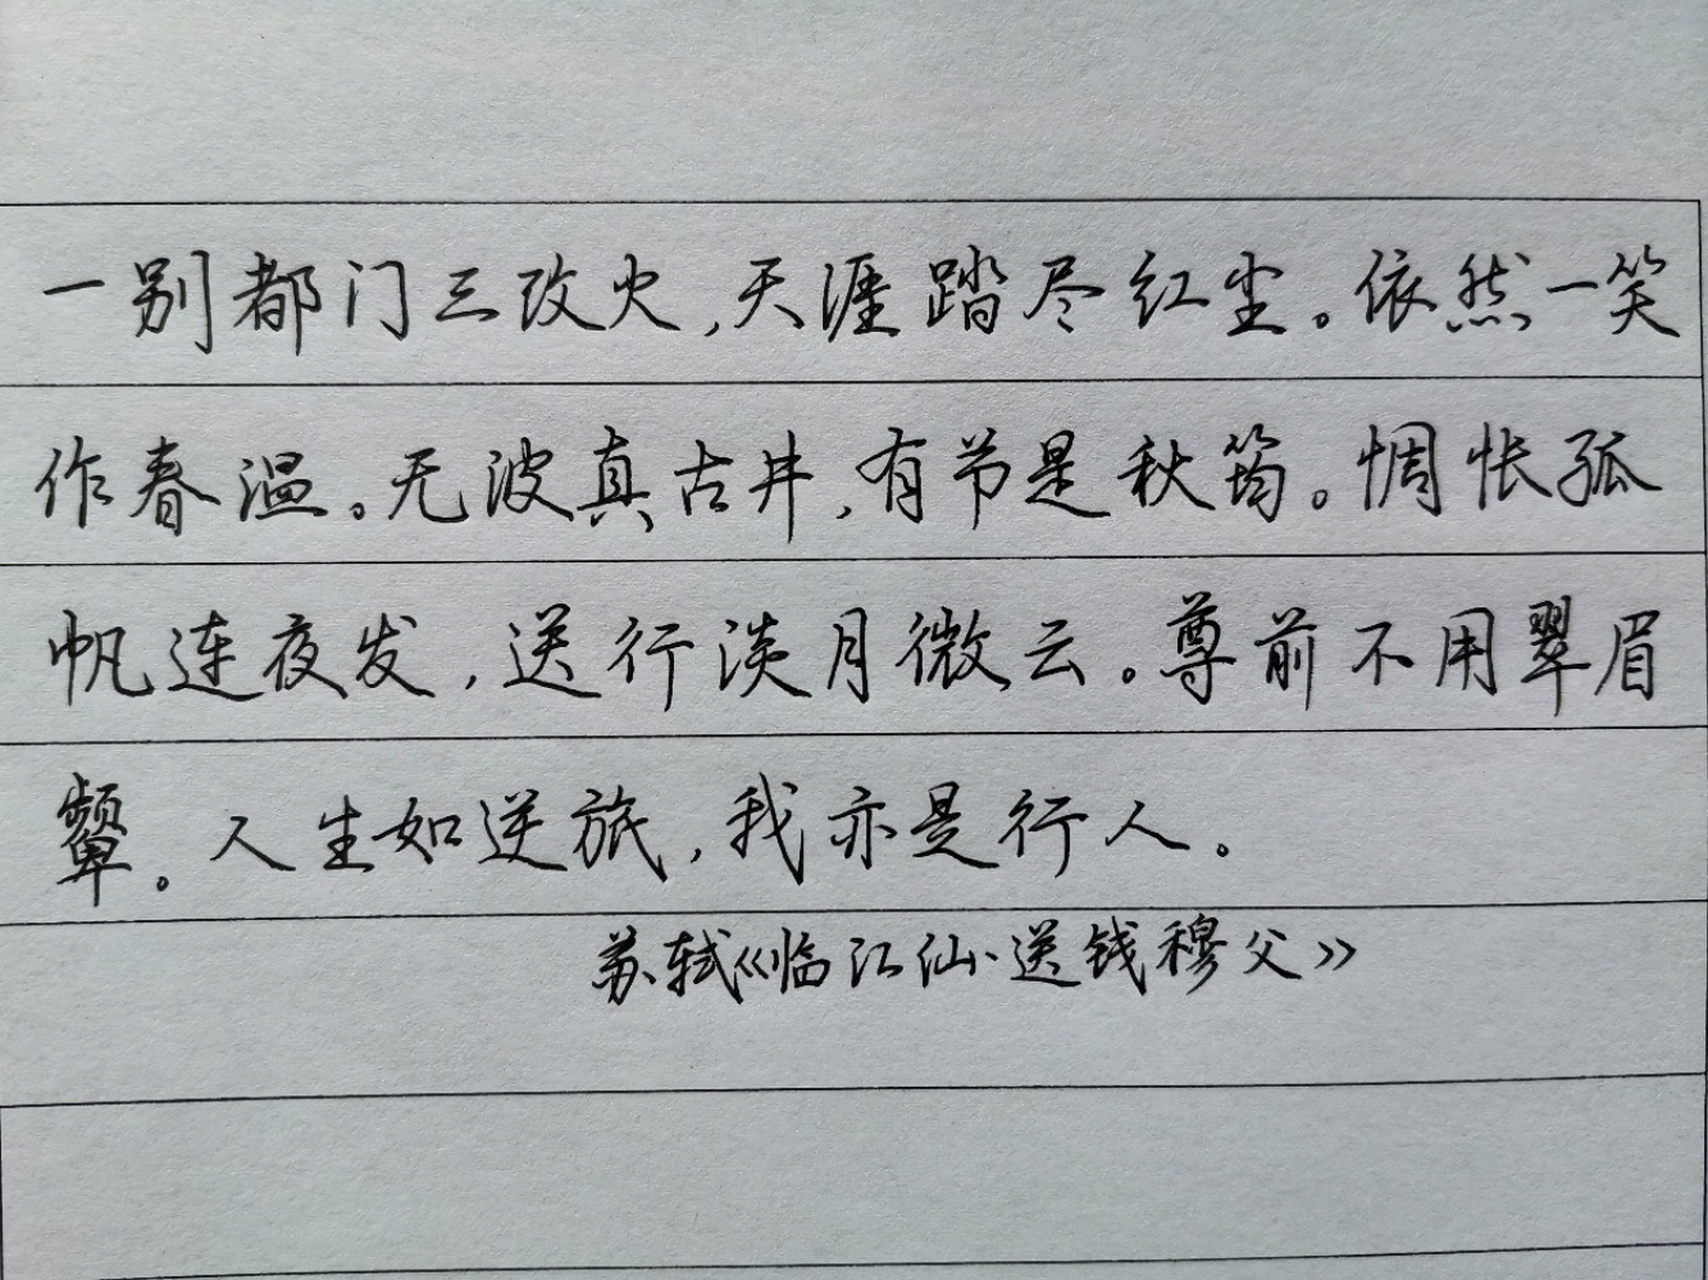 一别都门三改火,天涯踏尽红尘。依然一笑
作春温。无波真古井,有节是秋筠。惆怅孤
帆连夜发,送行淡月微云。尊前不用翠眉
颦。人生如逆旅,我亦是行人。
苏轼《临江仙·送钱穆父》